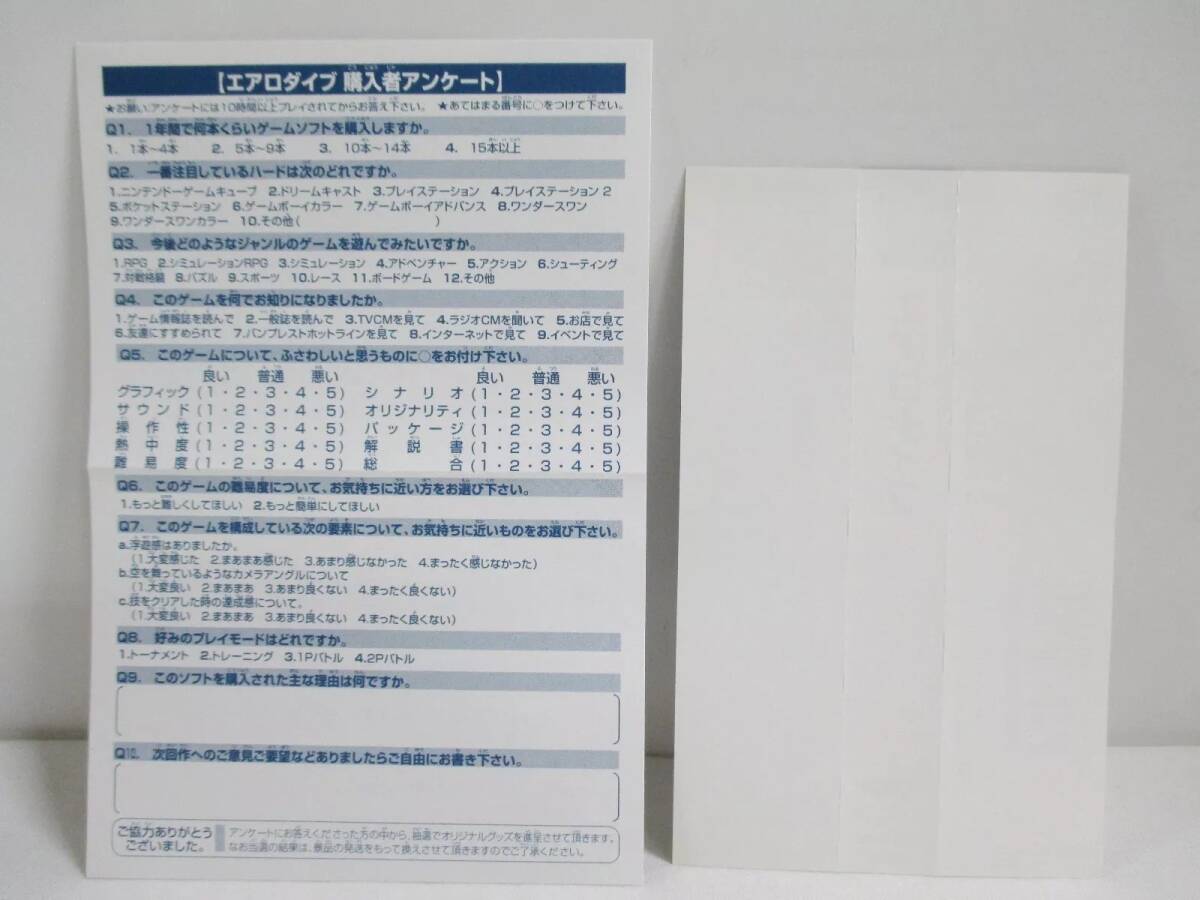 【エアロダイブ 購入者アンケート】
★お願い:アンケートには10時間以上プレイされてからお答え下さい。 ★あてはまる番号に○をつけて下さい。
Q1. 1年間で何本くらいゲームソフトを購入しますか。
1. 1本～4本 2. 5本～9本 3. 10本～14本 4. 15本以上
Q2. 一番注目しているハードは次のどれですか。
1.ニンテンドーゲームキューブ 2.ドリームキャスト 3.プレイステーション 4.プレイステーション2
5.ポケットステーション 6.ゲームボーイカラー 7.ゲームボーイアドバンス 8.ワンダースワン
9.ワンダースワンカラー 10.その他( )
Q3. 今後どのようなジャンルのゲームを遊んでみたいですか。
1.RPG 2.シミュレーションRPG 3.シミュレーション 4.アドベンチャー 5.アクション 6.シューティング
7.対戦格闘 8.パズル 9.スポーツ 10.レース 11.ボードゲーム 12.その他
Q4. このゲームを何でお知りになりましたか。
1.ゲーム情報誌を読んで 2.一般誌を読んで 3.TVCMを見て 4.ラジオCMを聞いて 5.お店で見て
6.友達にすすめられて 7.バンプレストホットラインを見て 8.インターネットで見て 9.イベントで見て
Q5. このゲームについて、ふさわしいと思うものに○をお付け下さい。
良い 普通 悪い 良い 普通 悪い
グラフィック(1・2・3・4・5) シナリオ(1・2・3・4・5)
サウンド(1・2・3・4・5) オリジナリティ(1・2・3・4・5)
操作性(1・2・3・4・5) パッケージ(1・2・3・4・5)
熱中度(1・2・3・4・5) 解説書(1・2・3・4・5)
難易度(1・2・3・4・5) 総合(1・2・3・4・5)
Q6. このゲームの難易度について、お気持ちに近い方をお選び下さい。
1.もっと難しくしてほしい 2.もっと簡単にしてほしい
Q7. このゲームを構成している次の要素について、お気持ちに近いものをお選び下さい。
a.浮遊感はありましたか。
(1.大変感じた 2.まあまあ感じた 3.あまり感じなかった 4.まったく感じなかった)
b.空を舞っているようなカメラアングルについて
(1.大変良い 2.まあまあ 3.あまり良くない 4.まったく良くない)
c.技をクリアした時の達成感について。
(1.大変良い 2.まあまあ 3.あまり良くない 4.まったく良くない)
Q8. 好みのプレイモードはどれですか。
1.トーナメント 2.トレーニング 3.1Pバトル 4.2Pバトル
Q9. このソフトを購入された主な理由は何ですか。
Q10. 次回作へのご意見ご要望などありましたらご自由にお書き下さい。
ご協力ありがとうございました。
アンケートにお答えくださった方の中から、抽選でオリジナルグッズを進呈させて頂きます。
なお当選の結果は、景品の発送をもって換えさせて頂きますのでご了承ください。